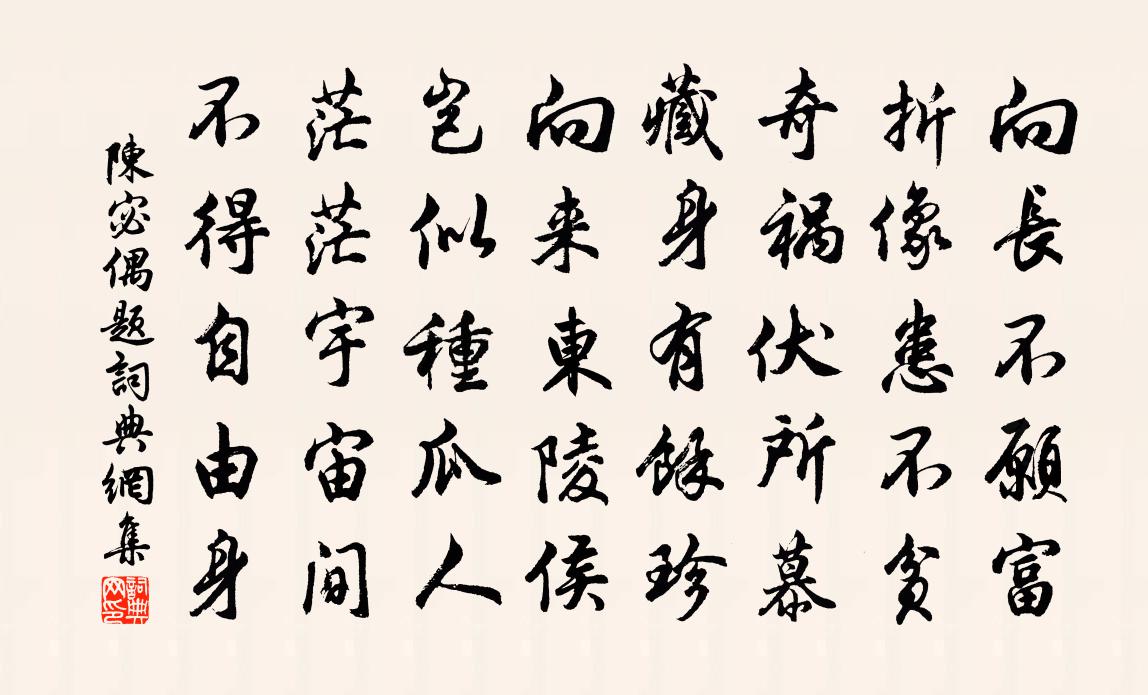 向長不願富
折像患不貧
奇禍伏所慕
藏身有餘珍
向来東陵侯
豈似種瓜人
茫茫宇宙間
不得自由身
陳宓偶题詞典網集
詞典网印